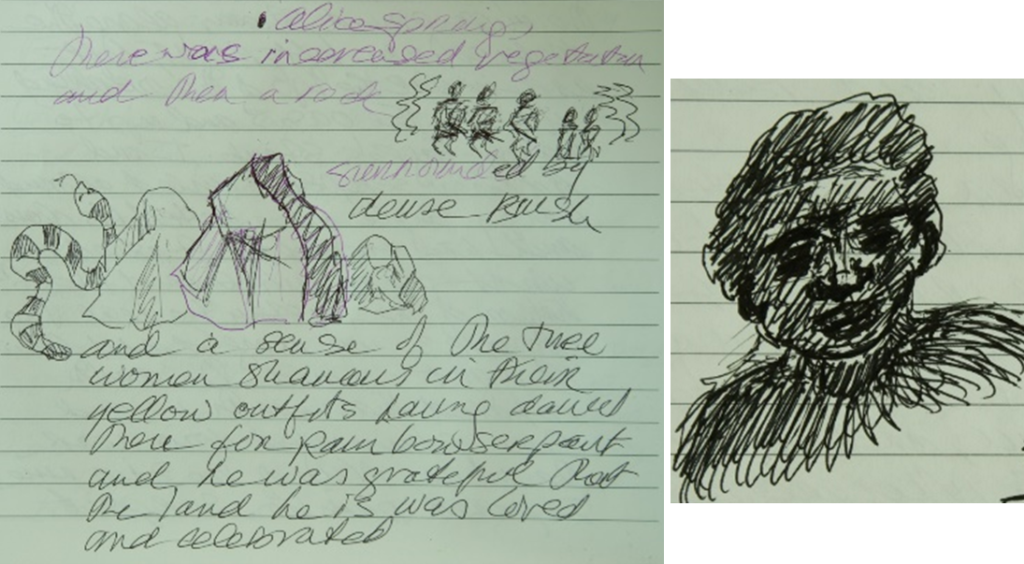 alice springs
there was increased vegetation
and then a rock
surrounded by
dense bush
and a sense of the three
women shamans in their
yellow outfits having danced
there for rainbow serpent
and he was grateful that
the land he is was loved
and celebrated